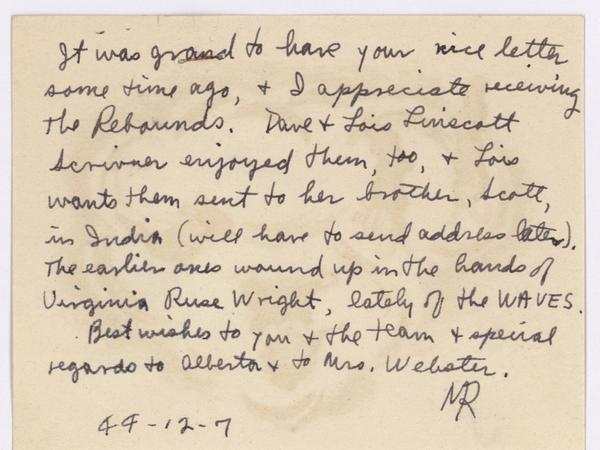 It was grand to have your nice letter
some time ago, & I appreciate receiving
the Rebounds. Dave & Lois Linscott
Scrivner enjoyed them, too, & Lois
wants them sent to her brother, Scott,
in India (will have to send address later).
The earlier ones wound up in the hands of
Virginia Ruse Wright, lately of the WAVES.
Best wishes to you & the team & special
regards to Alberta & to Mrs. Webster.
MR
44-12-7